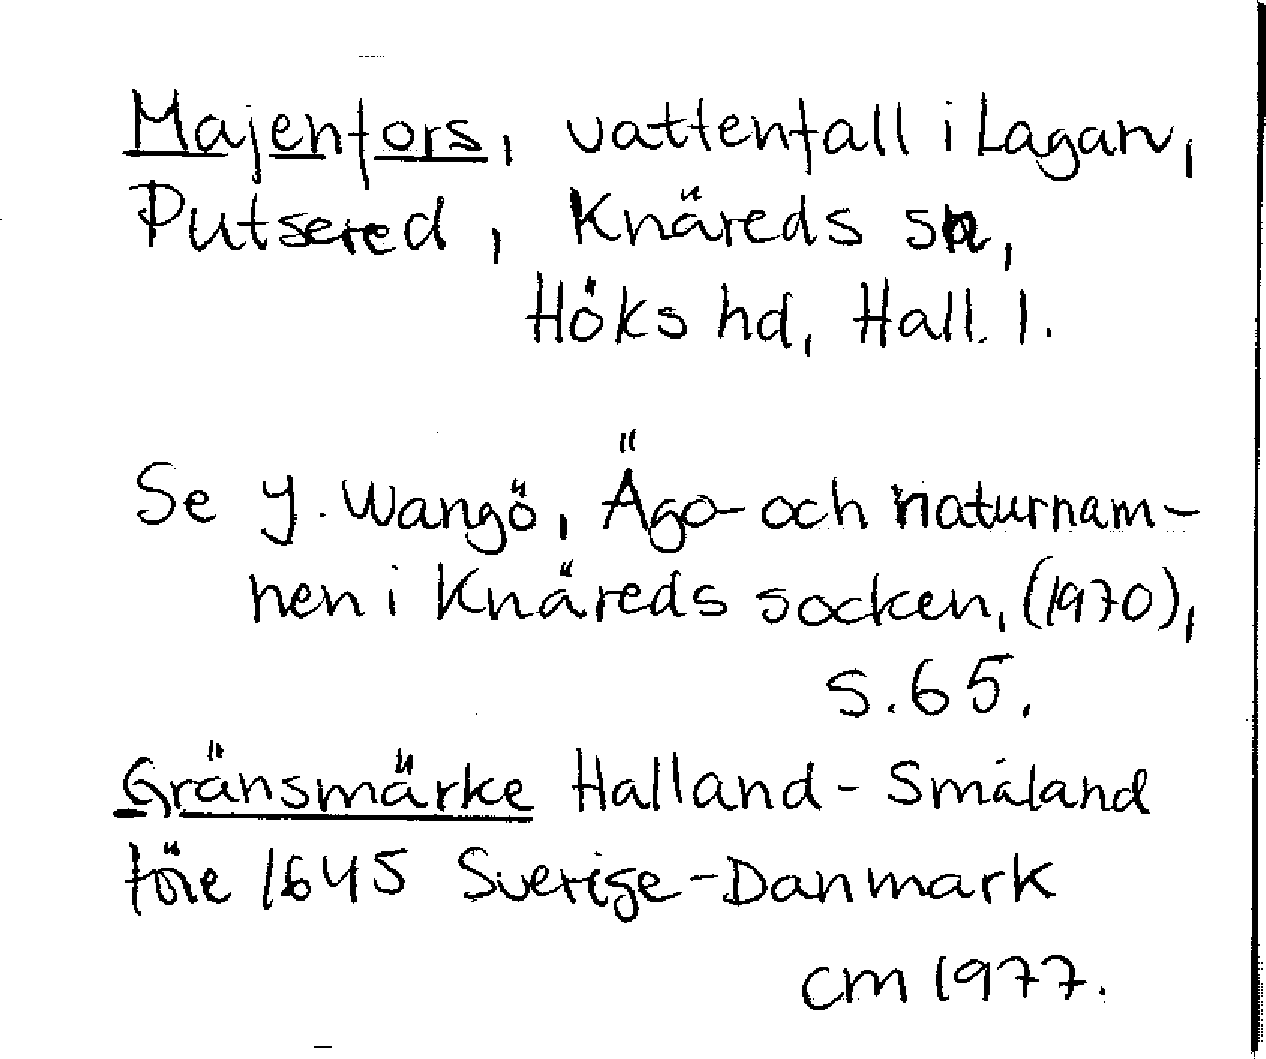 Majenfors, vattenfall i Lagan,
Putsered, Knäreds sn,
Höks hd, Hall. l.
Se Y. Wangö, Ägo- och naturnam-
nen i Knäreds socken, (1970),
s. 65.
Gränsmärke Halland - Småland
före 1645 Sverige - Danmark
cm 1977.